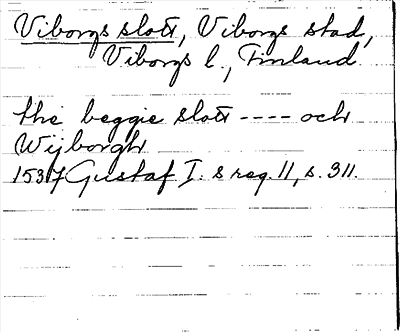 Viborgs slott, Viborgs stad,
Viborgs l., Finland.
the beggie slott ---- och
Wijborgh
1537 Gustaf I:s reg. 11, s. 311.